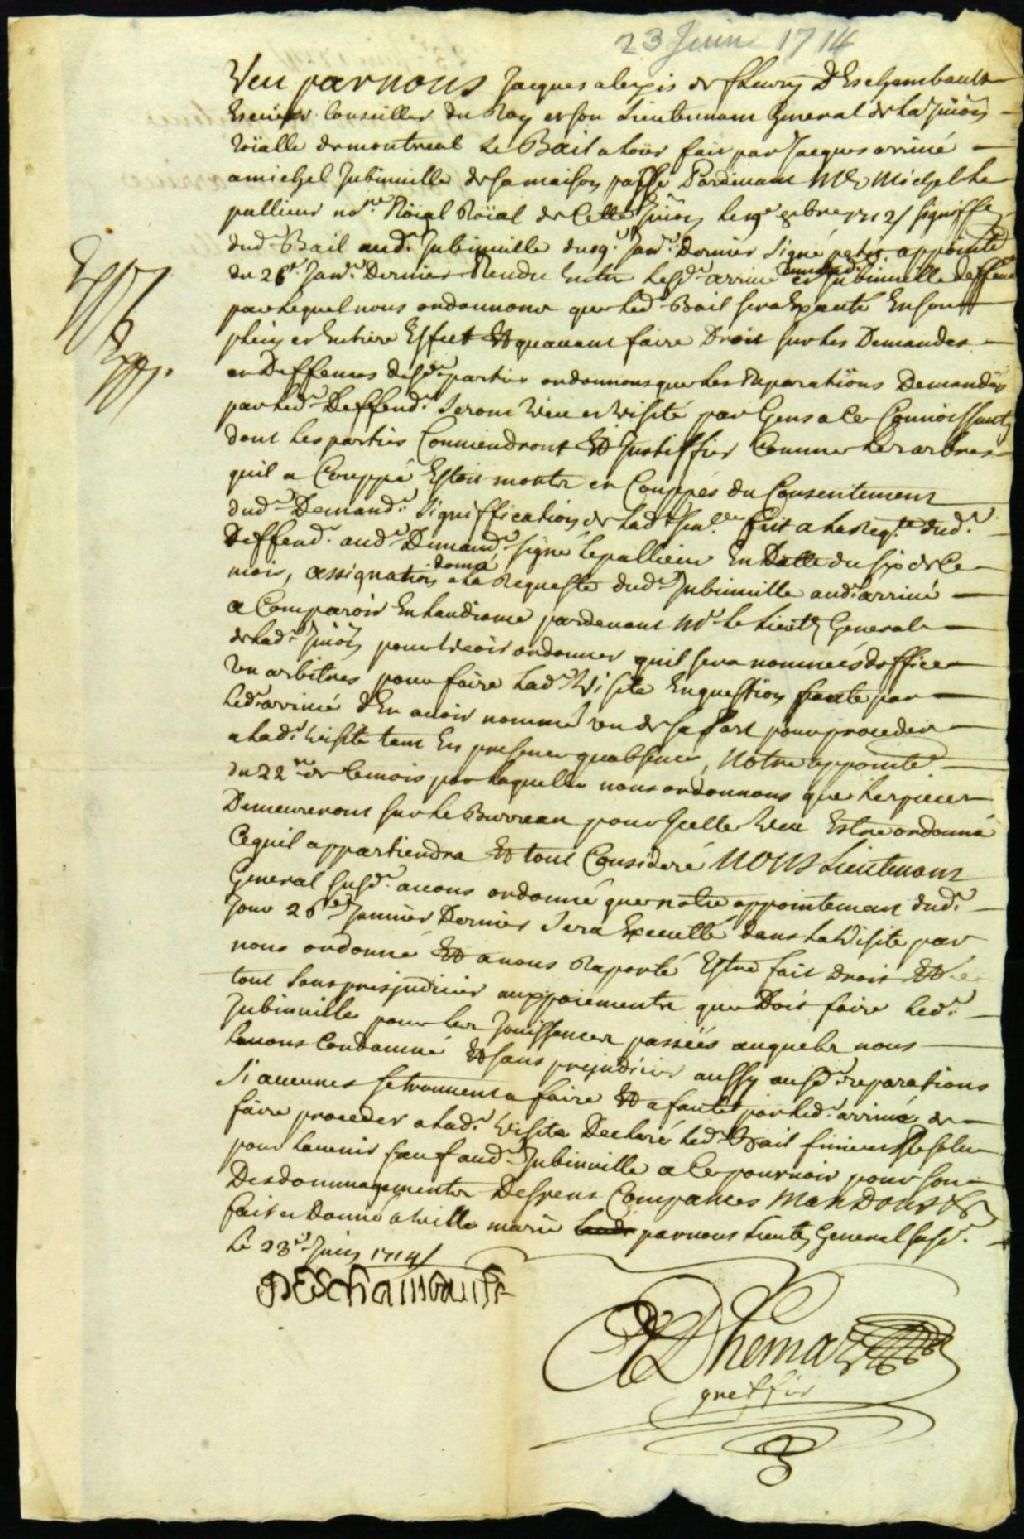 23 Juin 1714
Veu par nous Jacques alexis de fleury DEschambault
Escuier Conseiller du Roy et son Lieutenant General de la Juon
Roialle de montreal Le Bail a loier fait par Jacques arrivé
a michel Jubinville de sa maison passé Pardevant Me Michel Le
pallieur nore Royal de Cette Juon le 9bre 1712 signiffié
dud. Bail aud. Jubinville du 9e Janr Dernier Signé appointé
du 26e Janr Dernier Rendu Entre led. arrivé demandr et Jubinville deffendr
par lequel nous ordonnons que led. Bail sera Exécuté En son
plein et Entiere Effect Et quavant faire Droit sur les Demandes
et Deffences desd. parties ordonnons que les Reparations Demandées
par led. Deffendr Seront veu et visité par Gens a ce Connoissants
dont les parties Conviendront Et Justiffier Comme les arbres
quil a Couppé Estoit morts et Couppés du Consentement
dud. Demandr. Signiffication de lad. Snce fait a la Reqte dud.
Deffendr. aud. Demandr. signé Lepallieur En Datte du six de Ce
mois, assignation donné a la Requeste dud. Jubinville aud. arrivé
a Comparoir En Laudiance pardevant Mr le Lieutt General
de lad. Juon pour veoir ordonner quil sera nommé doffice
un arbitres pour faire lad. Visite En question faute par
led. arrivé dEn avoir nommé un de sa part pour proceder
a lad. visite tant En presence quabsence, Notre appointé
du 22me de Ce mois par laquelle nous ordonnons que les pieces
Demeureront sur le Bureau pour Icelle veu Estre ordonné
Ce quil appartiendra Et tout Consideré NOUS Lieutenant
General susd. avons ordonné que notre appointement dud.
Jour 26e Janvier Dernier Sera Executté dans la Visite par
nous ordonné Et a nous Raporté Estre fait droit Et le
tout sans prejudicier aux paiements que Doit faire led.
Jubinville pour les Jouissances passées auquels nous
lavons Condamné Et sans prejudicier aussy ausd. reparations
Si aucunes se trouvent a faire Et a faute par led. arrivé de
faire proceder a lad. visite Declaré led. Bail fini et Resolu
pour lavenir sauf aud. Jubinville a Ce pourvoir pour son
Desdommagements Despens Compancés MANDONS &
fait et Donné a ville marie par nous Lieutt General susd.
le 23e Juin 1714
DEschambault
ADhemar
greffier